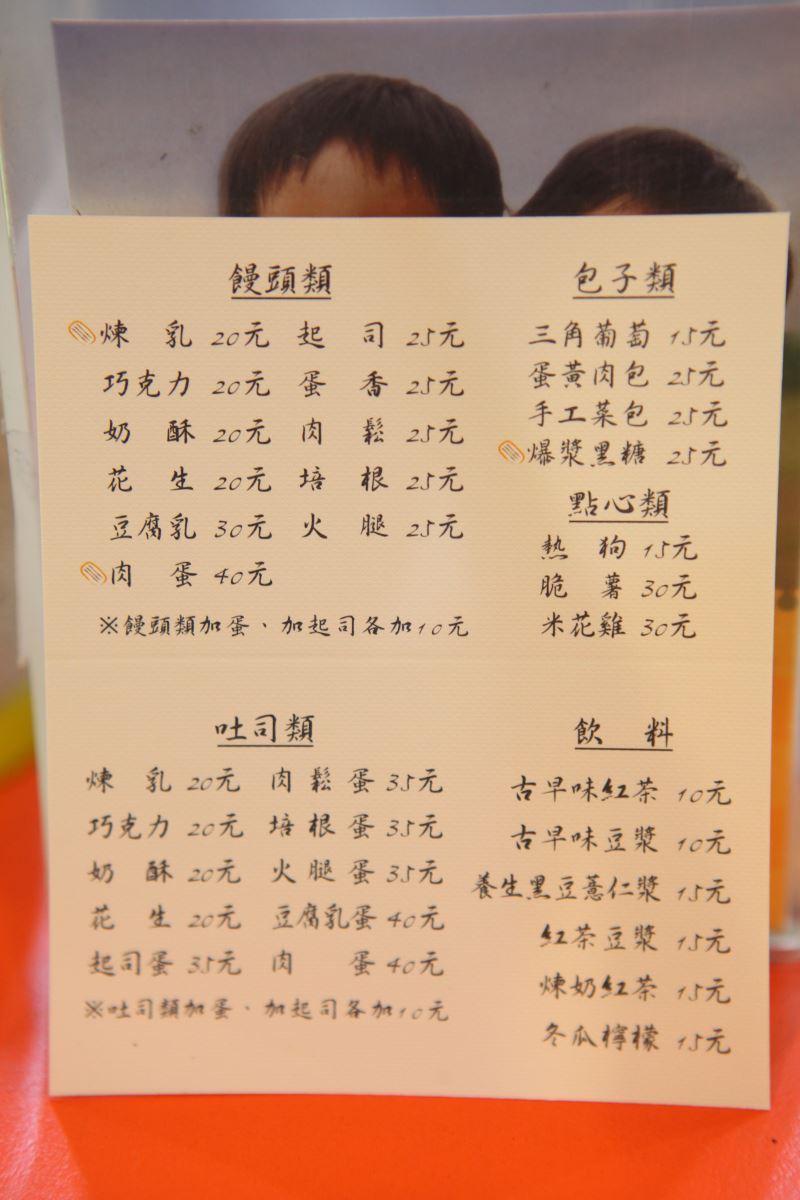 饅頭類
煉乳 20元 起司 25元
巧克力 20元 蛋香 25元
奶酥 20元 肉鬆 25元
花生 20元 培根 25元
豆腐乳 30元 火腿 25元
肉蛋 40元
※饅頭類加蛋、加起司各加10元
包子類
三角葡萄 15元
蛋黃肉包 25元
手工菜包 25元
爆漿黑糖 25元
點心類
熱狗 15元
脆薯 30元
米花雞 30元
吐司類
煉乳 20元 肉鬆蛋 35元
巧克力 20元 培根蛋 35元
奶酥 20元 火腿蛋 35元
花生 20元 豆腐乳蛋 40元
起司蛋 35元 肉蛋 40元
※吐司類加蛋、加起司各加10元
飲料
古早味紅茶 10元
古早味豆漿 10元
養生黑豆薏仁漿 15元
紅茶豆漿 15元
煉奶紅茶 15元
冬瓜檸檬 15元